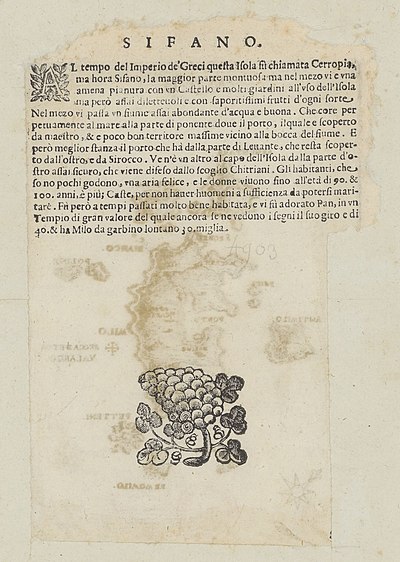 SIFANO.
AL tempo del Imperio de'Greci questa Isola fù chiamata Cerropia,
ma hora Sifano, la maggior parte montuosa ma nel mezo vi e vna
amena pianura con vn Castello e molti giardini all'vso dell'Isola
ma però assai diletteuoli e con saporitissimi frutti d'ogni sorte.
Nel mezo vi passa vn fiume assai abondante d'acqua e buona. Che core per
petuamente al mare alla parte di ponente doue il porto, il quale e scoperto
da maestro, & e poco bon territore massime vicino alla bocca del fiume. E
però meglior stanza il porto che hà dalla parte di Leuante, che resta scoper-
to dall'ostro, e da Sirocco. Ve n'è vn altro al capo dell'Isola dalla parte d'o-
stro assai sicuro, che viene difeso dallo scoglio Chitriani. Gli habitanti, che
so no pochi godono, vna aria felice, e le donne viuono fino all'età di 90. &
100. anni, è più; Caste, per non hauer huomeni a sufficienza da potersi mari-
tare. Fù però a tempi passati molto bene habitata, e vi fù adorato Pan, in vn
Tempio di gran valore del quale ancora se ne vedono i segni il suo giro e di
40. & ha Milo da garbino lontano 30. miglia.
4903
MILO